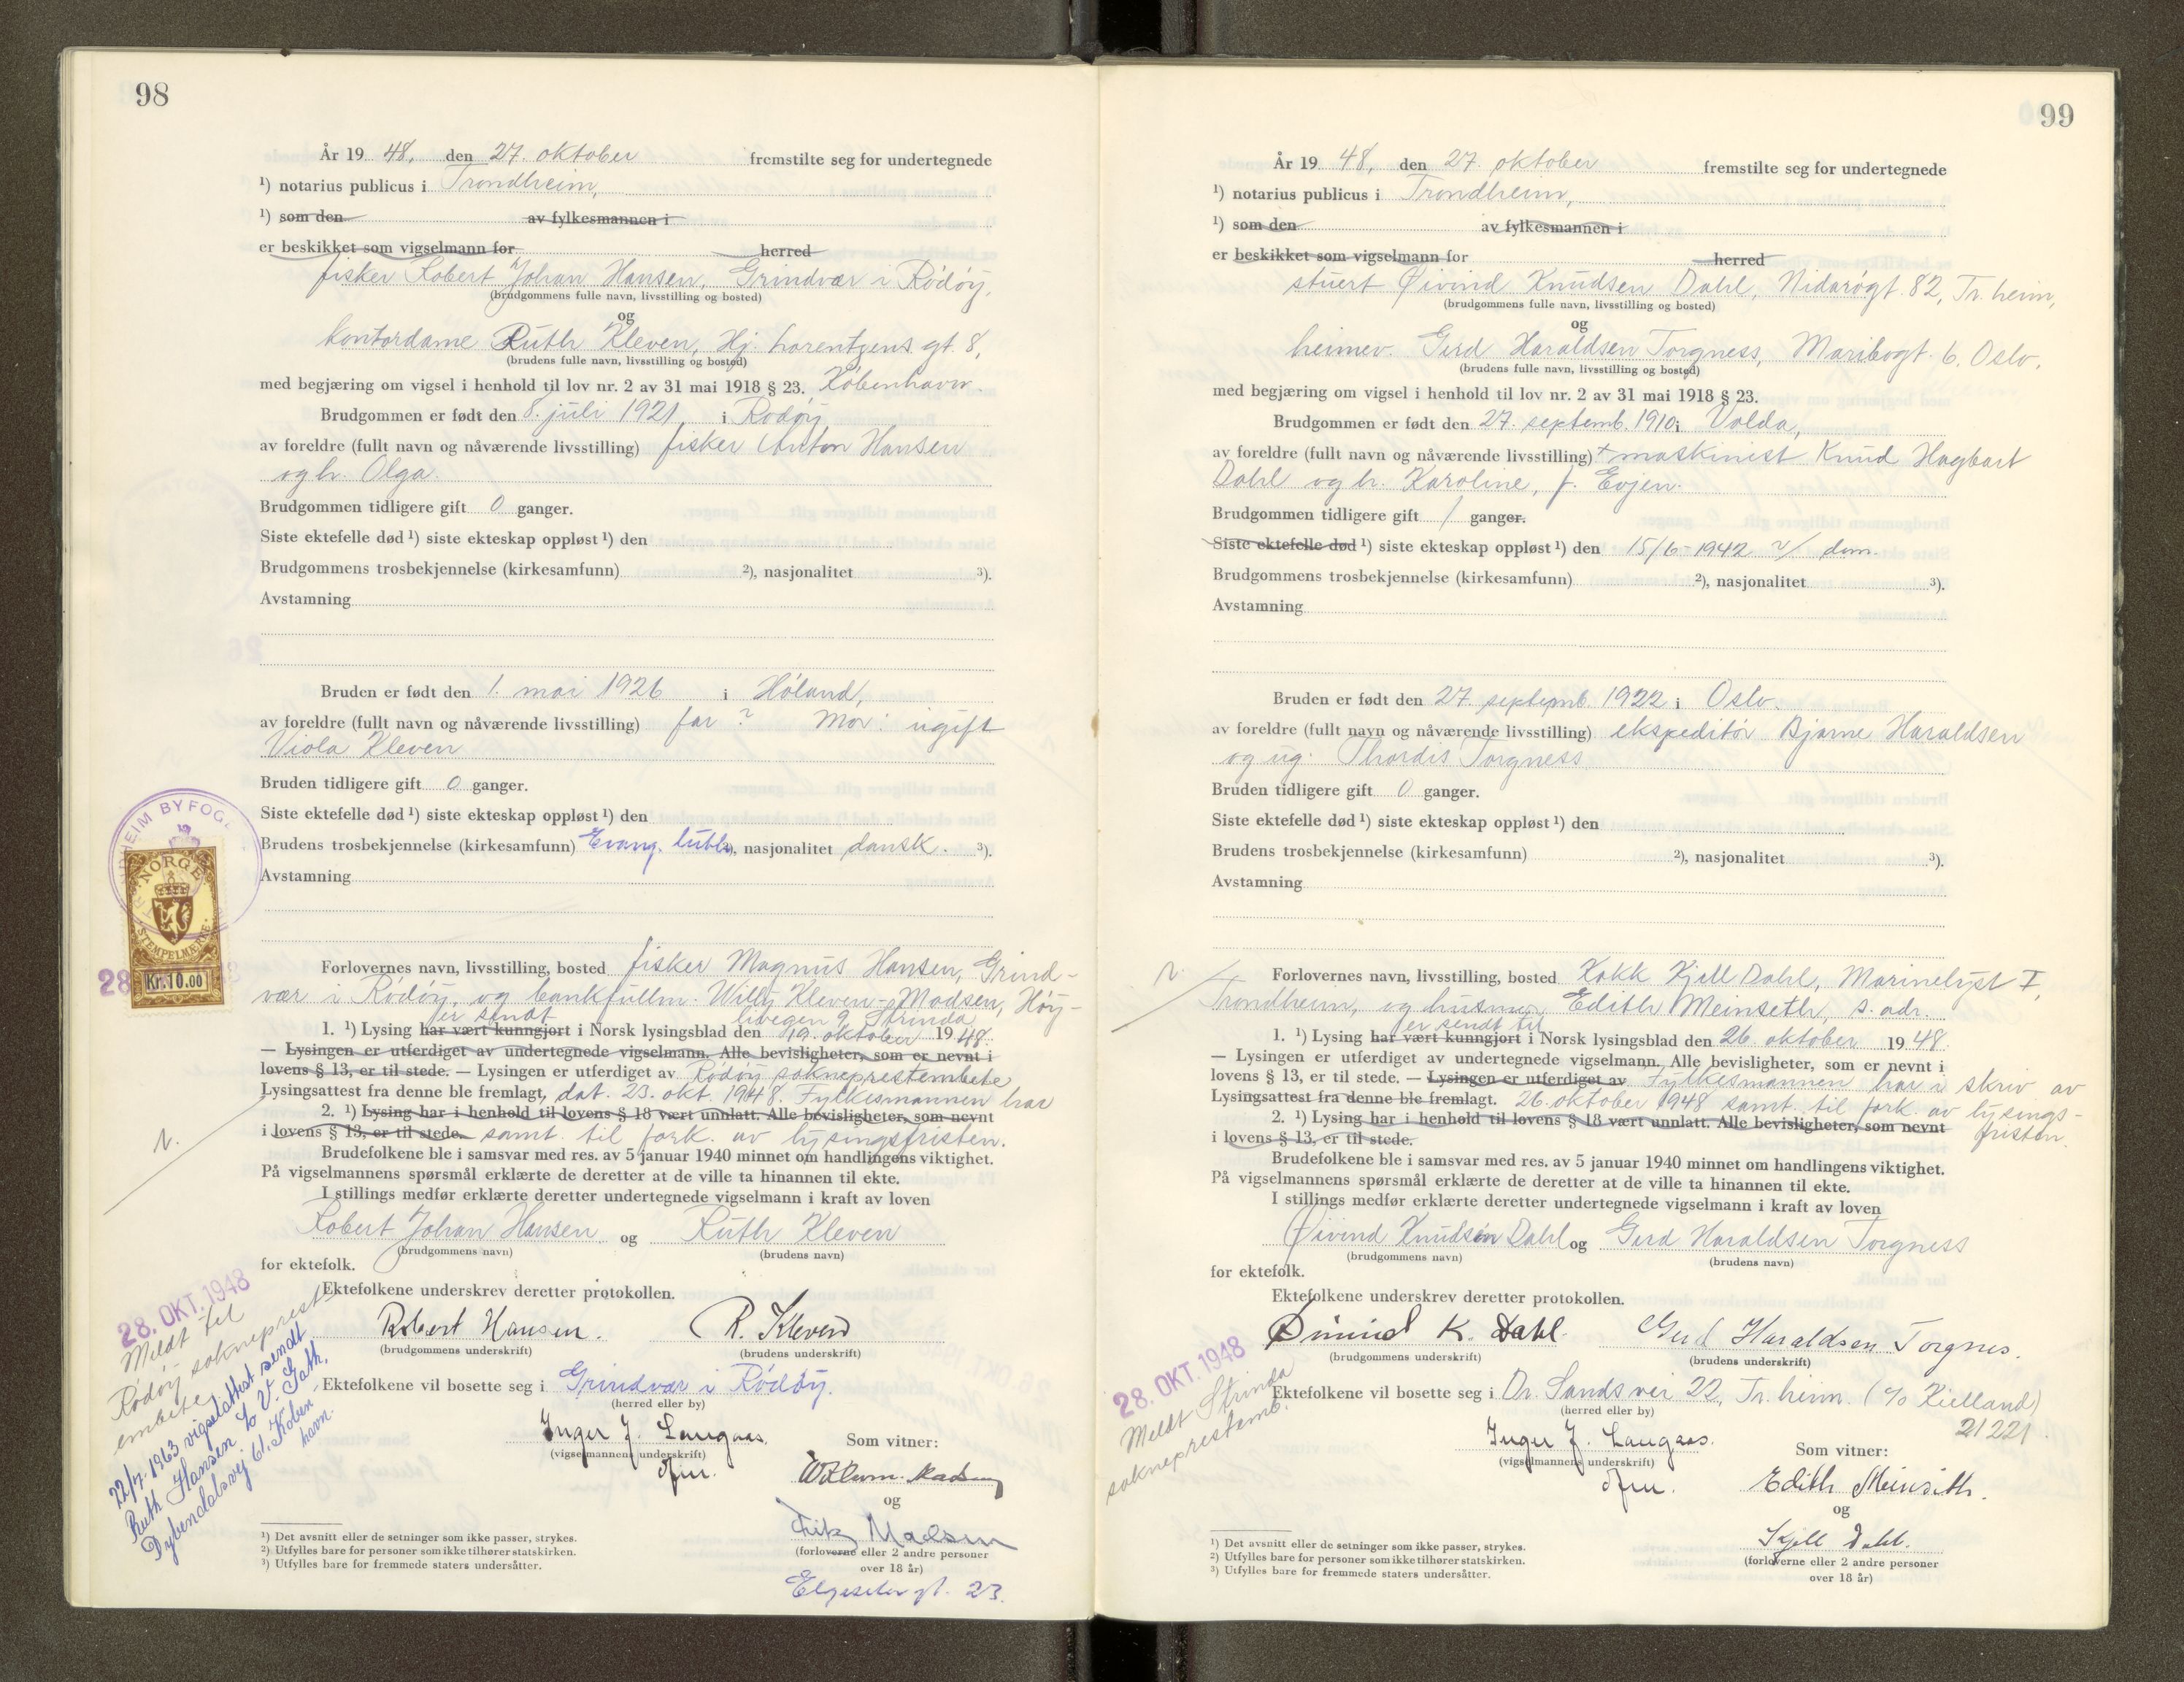 98
År 19 48, den 27. oktober fremstilte seg for undertegnede
¹) notarius publicus i Trondheim,
¹) som den av fylkesmannen i
er beskikket som vigselmann for herred
fisker Robert Johan Hansen, Grindvær i Rödöy,
(brudgommens fulle navn, livsstilling og bosted)
og
kontordame Ruth Kleven, Hj. Lorentzens gt. 8,
(brudens fulle navn, livsstilling og bosted)
med begjæring om vigsel i henhold til lov nr. 2 av 31 mai 1918 § 23. Köbenhavn.
Brudgommen er født den 8. juli 1921 i Rödöy
av foreldre (fullt navn og nåværende livsstilling) fisker Anton Hansen
og h. Olga.
Brudgommen tidligere gift 0 ganger.
Siste ektefelle død ¹) siste ekteskap oppløst ¹) den
Brudgommens trosbekjennelse (kirkesamfunn) ²), nasjonalitet ³).
Avstamning
Bruden er født den 1. mai 1926 i Höland,
av foreldre (fullt navn og nåværende livsstilling) far ? Mor: ugift
Viola Kleven
Bruden tidligere gift 0 ganger.
Siste ektefelle død ¹) siste ekteskap oppløst ¹) den
Brudens trosbekjennelse (kirkesamfunn) Evang. luth. ²), nasjonalitet dansk. ³).
Avstamning
TRONDHEIM BYFOGD
NORGE
STEMPELMÆRKE
Kr. 10.00
28
Forlovernes navn, livsstilling, bosted fisker Magnus Hansen, Grind-
vær i Rödöy, og bankfullm. Willy Kleven-Madsen, Höy-
er sendt livegen 9 Strinda
1. ¹) Lysing har vært kunngjort i Norsk lysingsblad den 19. oktober 19 48.
— Lysingen er utferdiget av undertegnede vigselmann. Alle bevisligheter, som er nevnt i
lovens § 13, er til stede. — Lysingen er utferdiget av Rödöy sokneprestembete
Lysingsattest fra denne ble fremlagt, dat. 23. okt. 1948. Fylkesmannen har
2. ¹) Lysing har i henhold til lovens § 18 vært unnlatt. Alle bevisligheter, som nevnt
i lovens § 13, er til stede. samt. til fork. av lysingsfristen.
Brudefolkene ble i samsvar med res. av 5 januar 1940 minnet om handlingens viktighet.
På vigselmannens spørsmål erklærte de deretter at de ville ta hinannen til ekte.
I stillings medfør erklærte deretter undertegnede vigselmann i kraft av loven
Robert Johan Hansen og Ruth Kleven
(brudgommens navn) (brudens navn)
for ektefolk.
Ektefolkene underskrev deretter protokollen.
Robert Hansen. R. Kleven
(brudgommens underskrift) (brudens underskrift)
Ektefolkene vil bosette seg i Grindvær i Rödöy.
(herred eller by)
Inger J. Langaas.
(vigselmannens underskrift)
Som vitner:
og
Fritz Madsen
(forloverne eller 2 andre personer
over 18 år)
Elgeseter gt. 23.
28. OKT. 1948
Meldt til
Rödöy sokneprest-
embete
22/7. 1963 vigselattest sendt
Ruth Hansen
Dybendalsvej 61. Köben
havn.
¹) Det avsnitt eller de setninger som ikke passer, strykes.
²) Utfylles bare for personer som ikke tilhører statskirken.
³) Utfylles bare for fremmede staters undersåtter.
99
År 19 48, den 27. oktober fremstilte seg for undertegnede
¹) notarius publicus i Trondheim,
¹) som den av fylkesmannen i
er beskikket som vigselmann for herred
stuert Øivind Knudsen Dahl, Nidarögt. 82, Tr.heim,
(brudgommens fulle navn, livsstilling og bosted)
og
heimev. Gerd Haraldsen Torgness, Maribogt. 6, Oslo.
(brudens fulle navn, livsstilling og bosted)
med begjæring om vigsel i henhold til lov nr. 2 av 31 mai 1918 § 23.
Brudgommen er født den 27. septemb. 1910 i Volda,
av foreldre (fullt navn og nåværende livsstilling) + maskinist Knud Hagbart
Dahl og h. Karoline, f. Evjen.
Brudgommen tidligere gift 1 ganger.
Siste ektefelle død ¹) siste ekteskap oppløst ¹) den 15/6-1942 v/ dom.
Brudgommens trosbekjennelse (kirkesamfunn) ²), nasjonalitet ³).
Avstamning
Bruden er født den 27. septemb. 1922 i Oslo.
av foreldre (fullt navn og nåværende livsstilling) ekspeditör Bjarne Haraldsen
og ug. Thordis Torgness
Bruden tidligere gift 0 ganger.
Siste ektefelle død ¹) siste ekteskap oppløst ¹) den
Brudens trosbekjennelse (kirkesamfunn) ²), nasjonalitet ³).
Avstamning
Forlovernes navn, livsstilling, bosted Kokk Kjell Dahl, Marinelyst I,
Trondheim, og husmor Edith Meinseth, s. adr.
er sendt til
1. ¹) Lysing har vært kunngjort i Norsk lysingsblad den 26. oktober 19 48.
— Lysingen er utferdiget av undertegnede vigselmann. Alle bevisligheter, som er nevnt i
lovens § 13, er til stede. — Lysingen er utferdiget av Fylkesmannen har i skriv av
Lysingsattest fra denne ble fremlagt. 26. oktober 1948 samt. til fork. av lysings-
2. ¹) Lysing har i henhold til lovens § 18 vært unnlatt. Alle bevisligheter, som nevnt fristen.
i lovens § 13, er til stede.
Brudefolkene ble i samsvar med res. av 5 januar 1940 minnet om handlingens viktighet.
På vigselmannens spørsmål erklærte de deretter at de ville ta hinannen til ekte.
I stillings medfør erklærte deretter undertegnede vigselmann i kraft av loven
Øivind Knudsen Dahl og Gerd Haraldsen Torgness
(brudgommens navn) (brudens navn)
for ektefolk.
Ektefolkene underskrev deretter protokollen.
Øivind K. Dahl. Gerd Haraldsen Torgnes.
(brudgommens underskrift) (brudens underskrift)
Ektefolkene vil bosette seg i Dr. Sands vei 22, Tr.heim. (c/o Kielland)
(herred eller by) 21221
Inger J. Langaas.
(vigselmannens underskrift)
Som vitner:
Edith Meinseth.
og
Kjell Dahl.
(forloverne eller 2 andre personer
over 18 år)
28. OKT. 1948
Meldt Strinda
sokneprestemb.
¹) Det avsnitt eller de setninger som ikke passer, strykes.
²) Utfylles bare for personer som ikke tilhører statskirken.
³) Utfylles bare for fremmede staters undersåtter.